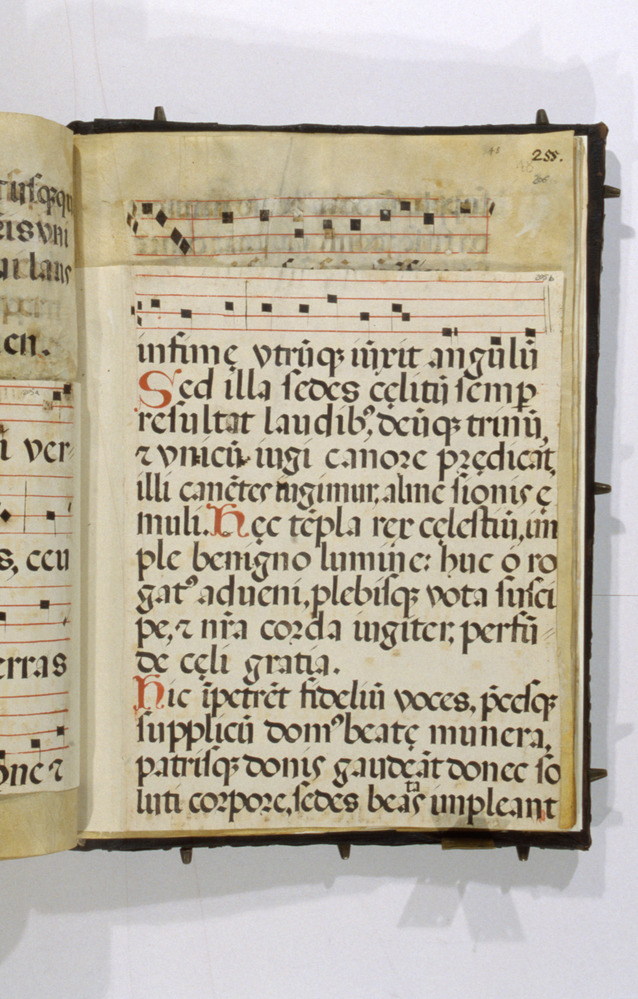 tusq̃ꝫ qu
ũ lans
en.
ũ ver
s, ceu
erras
one ⁊
255.
infimę vtrũqꝫ iũxit angũlũ
Sed illa sedes cęlitũ semꝑ
resultat laudibꝰ, deũqꝫ trinũ,
⁊ vnicũ iugi canore prędicat,
illi canẽtes iũgimur, almę sionis ę
muli. Hęc tẽpla rex cęlestiũ, im
ple benigno lumine: huc o ro
gatꝰ adueni, plebisqꝫ vota susci
pe, ⁊ nr̃a corda iugiter, perfũ
de cęli gratia.
Hic ĩpetrẽt fideliũ voces, p̃cesqꝫ
supplicũ domꝰ beatę munera,
patrisqꝫ donis gaudeãt donec so
luti corpore, sedes beatas impleant